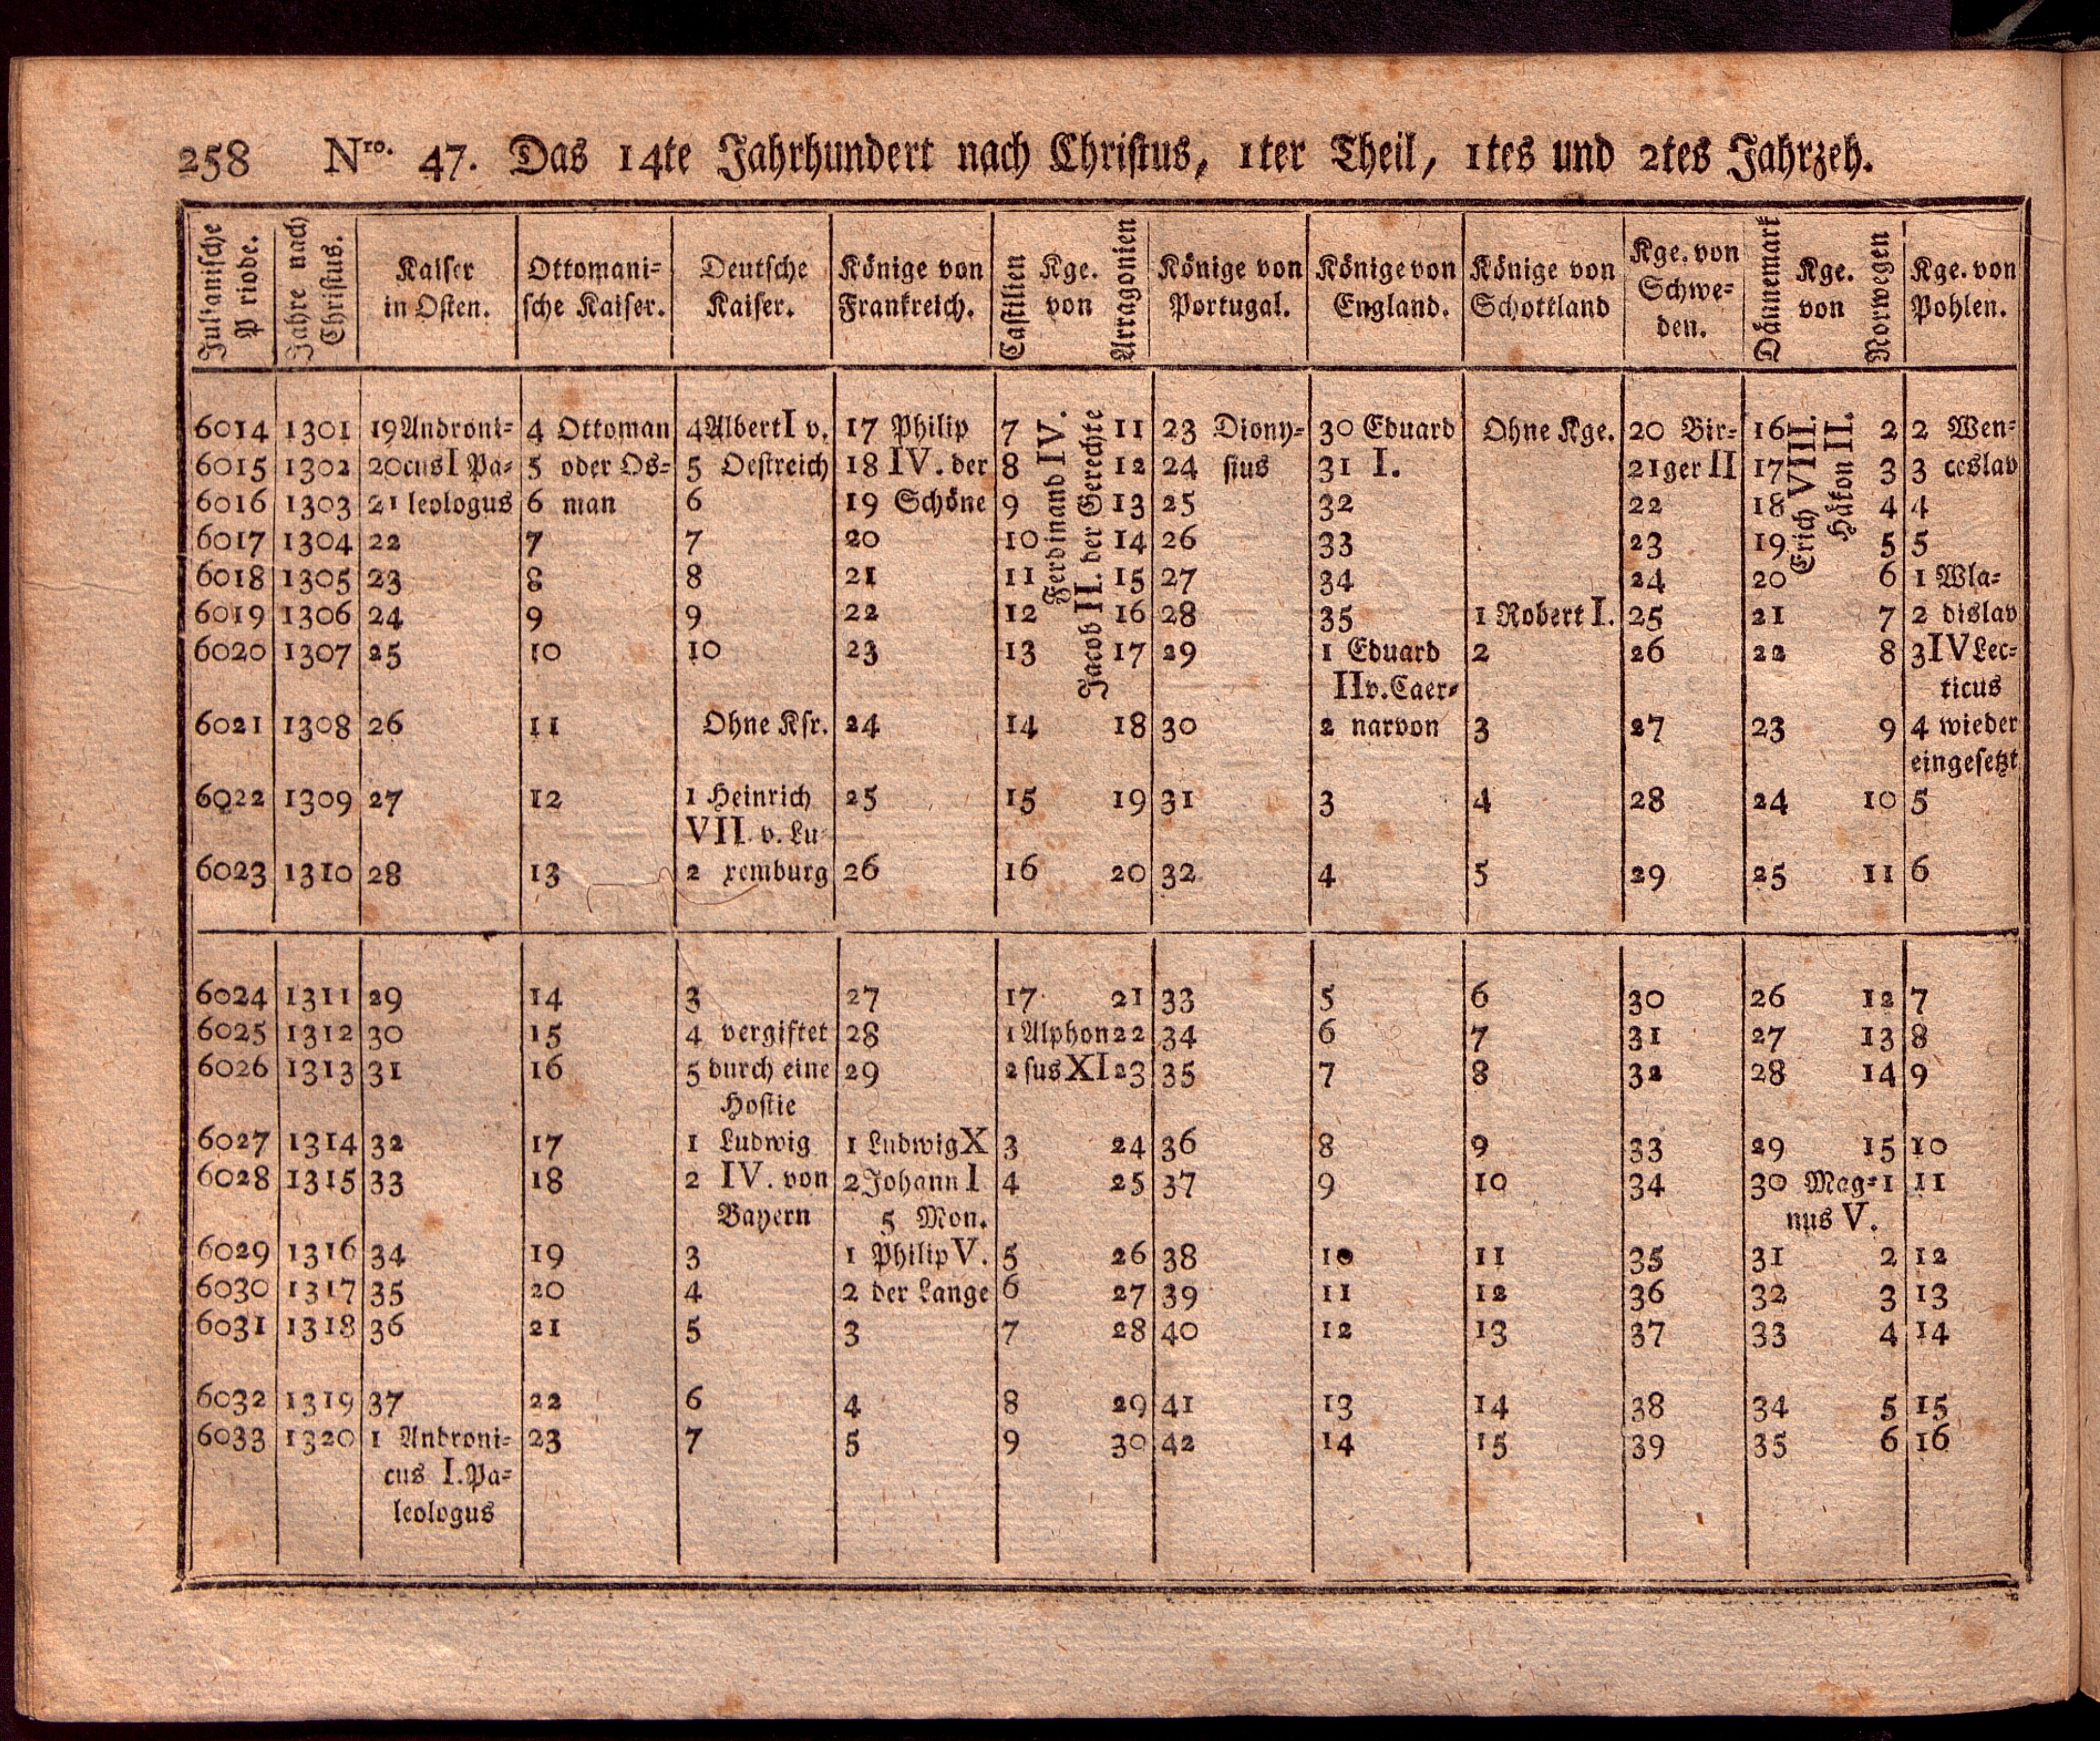 258 Nro. 47. Das 14te Jahrhundert nach Christus, 1ter Theil, 1tes und 2tes Jahrzeh.
Julianische P riode. Jahre nach Christus. Kaiser in Osten. Ottomani=sche Kaiser. Deutsche Kaiser. Könige von Frankreich. Castilien Kge. von Arragonien Könige von Portugal. Könige von England. Könige von Schottland Kge. von Schwe=den. Dännemark Kge. von Norwegen Kge. von Pohlen.
Ferdinand IV.
Jacob II. der Gerechte
Erich VIII.
Håkon II.
6014 1301 19 Androni= 4 Ottoman 4 Albert I v. 17 Philip 7 11 23 Diony= 30 Eduard Ohne Kge. 20 Bir= 16 2 2 Wen=
6015 1302 20 cus I Pa= 5 oder Os= 5 Oestreich 18 IV. der 8 12 24 sius 31 I. 21 ger II 17 3 3 ceslav
6016 1303 21 leologus 6 man 6 19 Schöne 9 13 25 32 22 18 4 4
6017 1304 22 7 7 20 10 14 26 33 23 19 5 5
6018 1305 23 8 8 21 11 15 27 34 24 20 6 1 Wla=
6019 1306 24 9 9 22 12 16 28 35 1 Robert I. 25 21 7 2 dislav
6020 1307 25 10 10 23 13 17 29 1 Eduard 2 26 22 8 3 IV Lec=
II v. Caer= ticus
6021 1308 26 11 Ohne Ksr. 24 14 18 30 2 narvon 3 27 23 9 4 wieder
eingesetzt
6022 1309 27 12 1 Heinrich 25 15 19 31 3 4 28 24 10 5
VII. v. Lu=
6023 1310 28 13 2 xemburg 26 16 20 32 4 5 29 25 11 6
6024 1311 29 14 3 27 17 21 33 5 6 30 26 12 7
6025 1312 30 15 4 vergiftet 28 1 Alphon 22 34 6 7 31 27 13 8
6026 1313 31 16 5 durch eine 29 2 sus XI 23 35 7 8 32 28 14 9
Hostie
6027 1314 32 17 1 Ludwig 1 Ludwig X 3 24 36 8 9 33 29 15 10
6028 1315 33 18 2 IV. von 2 Johann I 4 25 37 9 10 34 30 Mag= 1 11
Bayern 5 Mon. nus V.
6029 1316 34 19 3 1 Philip V. 5 26 38 10 11 35 31 2 12
6030 1317 35 20 4 2 der Lange 6 27 39 11 12 36 32 3 13
6031 1318 36 21 5 3 7 28 40 12 13 37 33 4 14
6032 1319 37 22 6 4 8 29 41 13 14 38 34 5 15
6033 1320 1 Androni= 23 7 5 9 30 42 14 15 39 35 6 16
cus I. Pa=
leologus